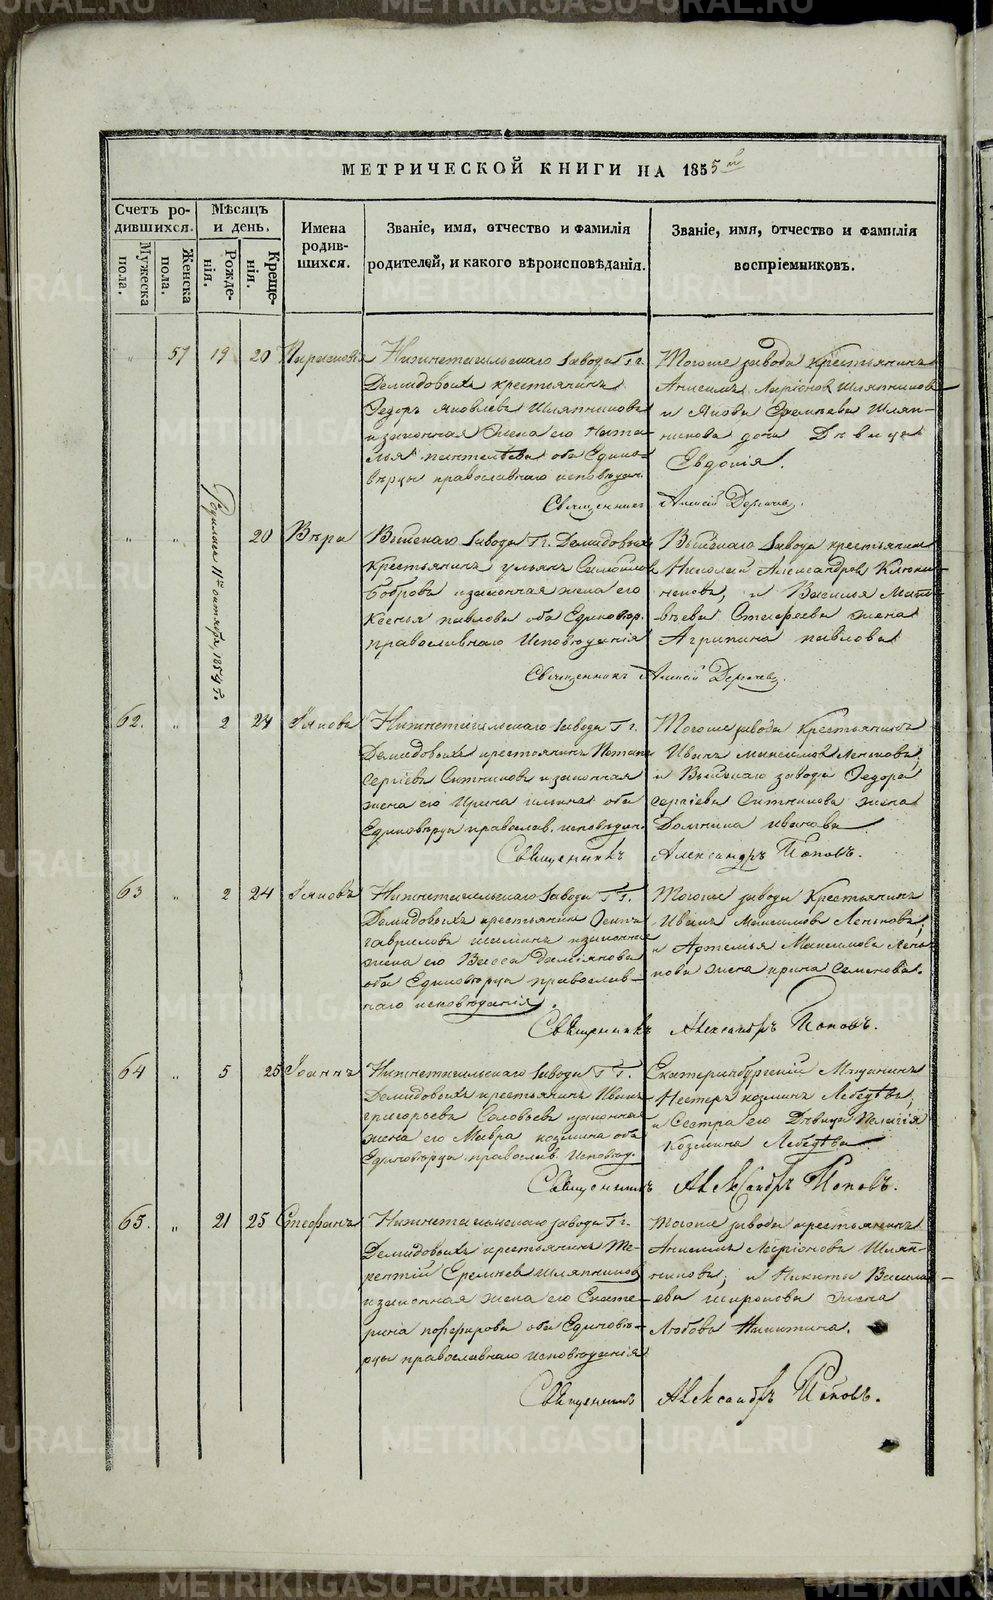 МЕТРИЧЕСКОЙ КНИГИ НА 1855й
Счетъ ро-
дившихся.
Мужеска
пола.
Женска
пола.
Мѣсяцъ
и день.
Рожде-
нія.
Креще-
нія.
Имена
родив-
шихся.
Званіе, имя, отчество и фамилія
родителей, и какого вѣроисповѣданія.
Званіе, имя, отчество и фамилія
воспріемниковъ.
" 57 19 20
Нижнетагильскаго завода Гг.
Демидовыхъ крестьянинъ
Федоръ Яковлевъ Шляпниковъ
и законная жена его Ната-
лья оба Едино-
вѣрцы православнаго исповѣдан.
Тогоже завода крестьянинъ
Анисимъ Ларіоновъ Шляпниковъ
и Якова Еремѣева Шляп-
никова дочь Дѣвица
Евдокія.
Священникъ Алексій
" " 20 Вѣра
Родилась 11го октября, 1854 г.
Выйскаго завода Гг. Демидовыхъ
крестьянинъ Ульянъ Самойловъ
Бобровъ и законная жена его
Ксенья Павлова оба Единовѣр.
православнаго Исповѣданія
Выйскаго завода крестьянинъ
Николай Александровъ Клюки-
и Василья Мат-
вѣева жена
Агрипина Павлова
Священникъ Алексій
62. " 2 24 Іаковъ
Нижнетагильскаго завода Гг.
Демидовыхъ крестьянинъ Потапъ
Сергіевъ Ситниковъ и законная
жена его Ирина Ильина оба
Единовѣрцы православ. исповѣдан.
Тогоже завода крестьянинъ
Иванъ Максимовъ Леньковъ,
и Выйскаго завода Федора
Сергіева Ситникова жена
Домника Иванова
Священникъ Александръ Поповъ.
63 " 2 24 Іаковъ
Нижнетагильскаго завода Гг.
Демидовыхъ крестьянинъ Осипъ
Гавриловъ и законна
жена его Васса Даміянова
оба Единовѣрцы православ-
наго исповѣданія.
Тогоже завода Крестьянинъ
Иванъ Максимовъ Леньковъ,
и Артемья Максимова Лень-
кова жена Ирина Семенова.
Священникъ Александръ Поповъ.
64 " 5 25 Іоаннъ
Нижнетагильскаго завода Гг.
Демидовыхъ крестьянинъ Иванъ
Григорьевъ Соловьевъ законная
жена его Мавра Козмина оба
Единовѣрцы православ. Исповѣд.
Екатеринбургскій Мѣщанинъ
Нестеръ Козминъ Лебедевъ,
и Сестра его Дѣвица Пелагія
Козмина Лебедева
Священникъ Александръ Поповъ.
65. " 21 25 Стефанъ
Нижнетагильскаго завода Гг.
Демидовыхъ крестьянинъ Те-
рентій Еремѣевъ Шляпниковъ
и законная жена его Екате-
рина Порфирова оба Единовѣ-
рцы православнаго исповѣданія
Тогоже завода крестьянинъ
Анисимъ Ларіоновъ Шляп-
никовъ, и Никиты Василь-
ева жена
Любовь Никитина.
Священникъ Александръ Поповъ.
METRIKI.GASO-URAL.RU